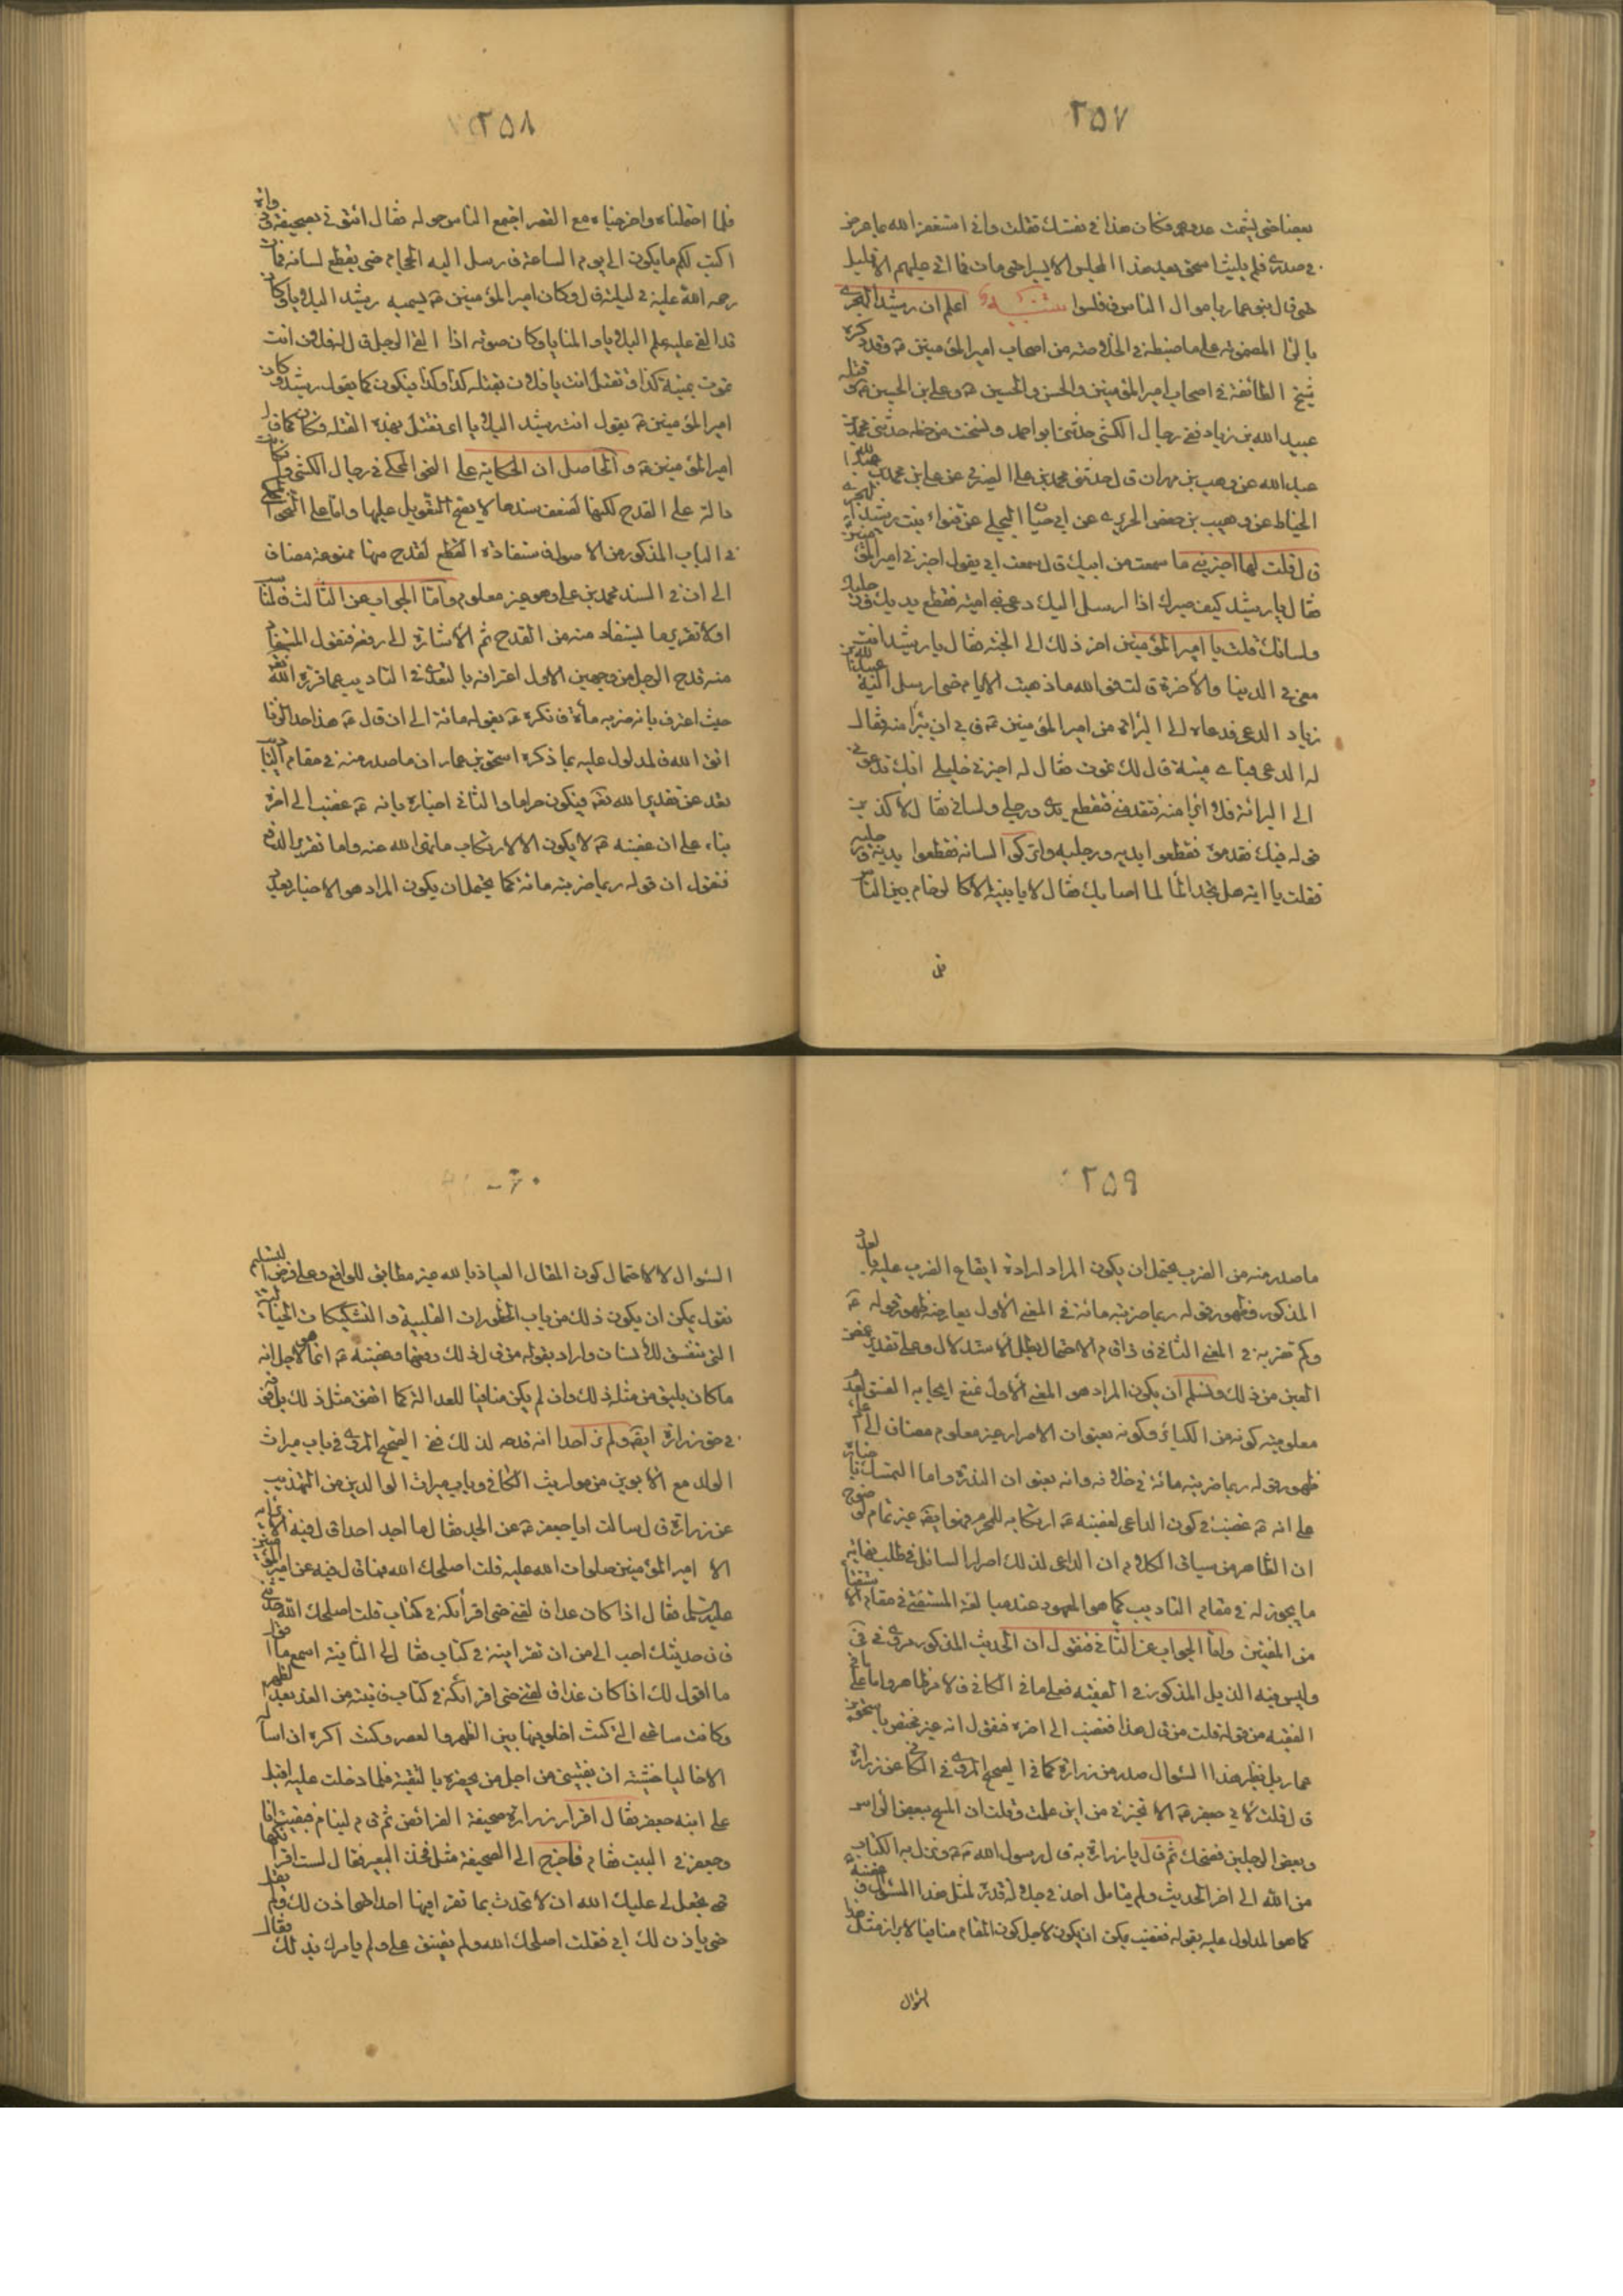 ٢٥٧
بعضا حتى يشمت عدوهم فكان هذا في نفسك فقلت واني استغفر الله مما عرض
في صدري فلم يلبث اسحق بعد هذا المجلس الا يسيرا حتى مات فما اتى عليهم الا قليل
حتى قام بنو عمار باموال الناس فافلسوا تنبيه اعلم ان رشيد الهجري
بالراء المضمومة على ما ضبطه في الخلاصة من اصحاب امير المؤمنين ع وقد ذكره
شيخ الطائفة في اصحاب امير المؤمنين والحسن والحسين ع وعلي بن الحسين ع وقتله
عبيد الله بن زياد ففي رجال الكشي حدثني ابو احمد ونسخت من خطه حدثني محمد بن
عبد الله عن وهب بن مهران قال حدثني محمد بن علي الصيرفي عن علي بن محمد بن عبد الله
الحناط عن وهيب بن حفص الجريري عن ابي حيان البجلي عن قنواء بنت رشيد الهجري
قال قلت لها اخبريني ما سمعت من ابيك قال سمعت ابي يقول اخبرني امير المؤمنين
فقال يا رشيد كيف صبرك اذا ارسل اليك دعي بني امية فقطع يديك ورجليك
ولسانك قلت يا امير المؤمنين اخر ذلك الى الجنة فقال يا رشيد انت
معي في الدنيا والاخرة قالت فوالله ما ذهبت الايام حتى ارسل اليه عبيد الله بن
زياد الدعي فدعاه الى البرائة من امير المؤمنين ع فابى ان يتبرأ منه فقال
له الدعي فباي ميتة قال لك تموت فقال له اخبرني خليلي انك تدعوني
الى البرائة فلا ابرأ منه فتقدمني فتقطع يدي ورجلي ولساني فقال لاكذبن
قوله فيك فقدموه فقطعوا يديه ورجليه واتركوا لسانه فقطعوا يديه ورجليه
فقلت يا ابه هل تجد الما لما اصابك فقال لا يا بنية الا كالزحام بين الناس
فلما
٢٥٨
فلما احتملناه واخرجناه مع القصر اجتمع الناس حوله فقال ائتوني بصحيفة ودواة
اكتب لكم ما يكون الى يوم الساعة فارسل اليه الحجام حتى يقطع لسانه فمات
رحمة الله عليه في ليلته قال وكان امير المؤمنين ع يسميه رشيد البلايا وكان
قد القى عليه علم البلايا والمنايا وكان صوته اذا القى الرجل قال له فلان انت
تموت بميتة كذا وتقتل انت يا فلان بقتلة كذا وكذا فيكون كما يقول رشيد وكان
امير المؤمنين ع يقول انت رشيد البلايا اي تقتل بهذه القتلة فكان كما قال
امير المؤمنين ع والحاصل ان الحكاية على النحو المحكي في رجال الكشي وان كانت
دالة على القدح لكنها لضعف سندها لا يصح التعويل عليها واما على النحو المحكي
في الباب المذكور من الاصول فاستفادة القطع لقدح منها ممنوعة مضاف
الى ان في السند محمد بن علي وهو غير معلوم واما الجواب عن الثالث فلنا
اولا تقرير ما يستفاد منه من القدح ثم الاشارة الى رفعه فنقول المستفاد
منه قدح الرجل من وجهين الاول اعترافه بالتعدي في التاديب عما قرره الله تعالى
حيث اعترف بانه ضربه مائة فانكره ع بقوله مائة الى ان قال ع هذا حد الزنا
اتق الله فالمدلول عليه بما ذكره اسحق بن عمار ان ما صدر منه في مقام التاديب
تعد عن تقدير الله تعالى فيكون حراما والثاني اخباره بانه ع غضب الى اخره
بناء على ان غضبه ع لا يكون الا لارتكاب ما نهى الله عنه واما تقرير الدفع
فنقول ان قوله ربما ضربته مائة كما يحتمل ان يكون المراد هو الاخبار بعدد
٢٥٩
ما صدر منه من الضرب يحتمل ان يكون المراد ارادة ايقاع الضرب عليه بالعدد
المذكور وظهور قوله ربما ضربته مائة في المعنى الاول يعارضه ظهور قوله ع
وكم تضربه في المعنى الثاني فاذا قام الاحتمال بطل الاستدلال وعلى تقدير غض
العين من ذلك ونسلم ان يكون المراد هو المعنى الاول نمنع ايجابه الفسق لعدم
معلومية كونه من الكبائر وكونه بعنوان الاصرار غير معلوم مضاف الى
ظهور قوله ربما ضربته مائة في خلافه وانه بعنوان الندرة واما التمسك باخباره
على انه ع غضب في كون الداعي لغضبه ع ارتكابه للمحرم فهو ايضا غير تمام لوضوح
ان الظاهر من سياق الكلام ان الداعي لذلك اصرار السائل في طلب نهاية
ما يجوز له في مقام التاديب كما هو المعهود عند مبالغة المستفتي في مقام الاستفتاء
من المفتين واما الجواب عن الثاني فنقول ان الحديث المذكور مروي في في
وليس فيه الذيل المذكور في الفقيه فعلى ما في الكافي فالامر ظاهر واما على ما في
الفقيه من قوله قلت من قال هذا فغضب الى اخره فنقول انه غير مختص باسحق بن
عمار بل نظير هذا السؤال صدر من زرارة كما في الصحيح المروي في الكافي عن زرارة
قال قلت لابي جعفر ع الا تخبرني من اين علمت وقلت ان المسح ببعض الراس
وبعض الرجلين فضحك ثم قال يا زرارة به قال رسول الله ص ونزل به الكتاب
من الله الى اخر الحديث ولم يتامل احد في جلالة قدره لمثل هذا السؤال وغضبه
كما هو المدلول عليه بقوله فغضب يمكن ان يكون لاجل كون المقام منافيا لابراز مثل هذا
السؤال
٢٦٠
السئوال لا لاحتمال كون المقال العياذ بالله غير مطابق للواقع وعلى فرض التسليم
نقول يمكن ان يكون ذلك من باب الخطورات القلبية والتشكيكات الخيالية
التي تتفق للانسان واراد بقوله من قال ذلك دفعها وغضبه ع انما هو لاجل انه
ما كان يليق من مثله ذلك وان لم يكن منافيا للعدالة كما اتفق مثل ذلك بل فوقه
في حق زرارة ايضا ولم نر احدا انه قدحه لذلك ففي الصحيح المروي في باب ميراث
الولد مع الابوين من مواريث الكافي وباب ميراث الوالدين من التهذيب
عن زرارة قال سالت ابا جعفر ع عن الجد فقال ما اجد احدا قال فيه الا برأيه
الا امير المؤمنين صلوات الله عليه قلت اصلحك الله فما قال فيه امير المؤمنين
عليه السلام فقال اذا كان غدا فالقني حتى اقرأكه في كتاب قلت اصلحك الله حدثني
فان حديثك احب الي من ان تقرأنيه في كتاب فقال لي الثانية اسمع ما
ما اقول لك اذا كان غدا فالقني حتى اقرأكه في كتاب فاتيته من الغد بعد الظهر
وكانت ساعتي التي كنت اخلو به فيها بين الظهر والعصر وكنت اكره ان اساله
الا خاليا خشية ان يفتيني من اجل من يحضره بالتقية فلما دخلت عليه اقبل
على ابنه جعفر فقال اقرأ زرارة صحيفة الفرائض ثم قام لينام فبقيت انا
وجعفر في البيت فقام فاخرج الي الصحيفة مثل فخذ البعير فقال لست اقرأكها
حتى تجعل لي عليك الله ان لا تحدث بما تقرأ فيها احدا حتى اذن لك ولم يقل
حتى ياذن لك ابي فقلت اصلحك الله ولم تضيق علي ولم يامرك بذلك فقال